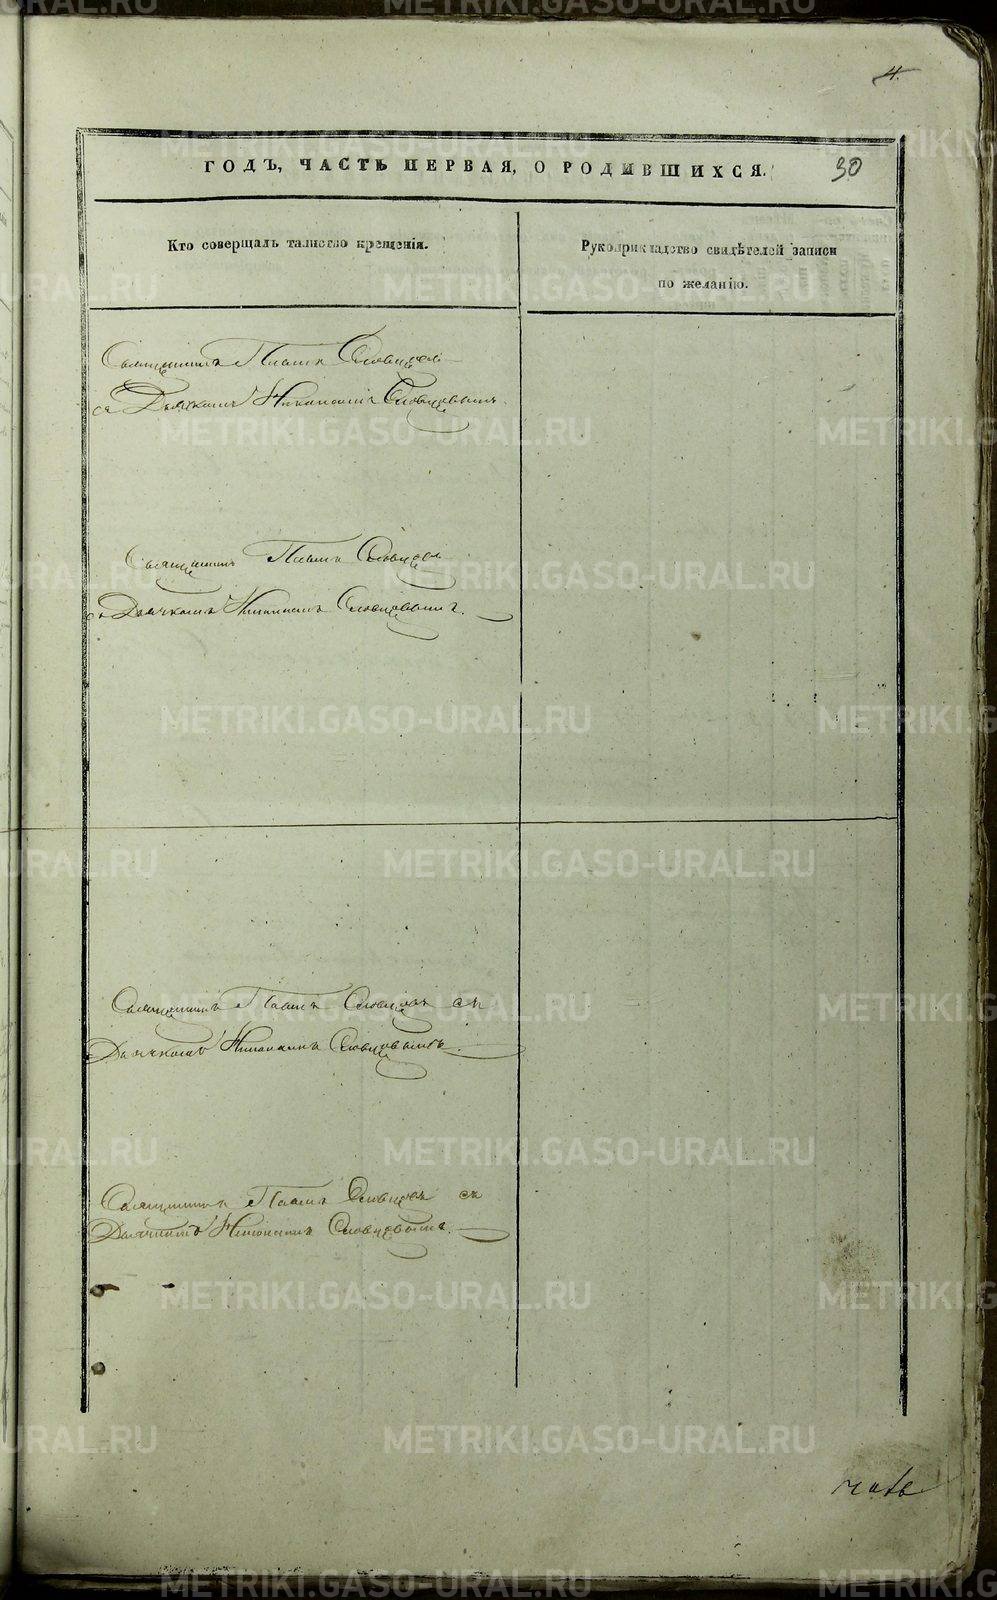 4.
ГОДЪ, ЧАСТЬ ПЕРВАЯ, О РОДИВШИХСЯ.
30
Кто совершалъ таинство крещенія.
Рукоприкладство свидѣтелей записи
по желанію.
Священникъ Павелъ Словцовъ
съ Дьячкомъ Словцовымъ.
Священникъ Павелъ Словцовъ
съ Дьячкомъ Словцовымъ.
Священникъ Павелъ Словцовъ съ
Дьячкомъ Словцовымъ.
Священникъ Павелъ Словцовъ съ
Дьячкомъ Словцовымъ.
METRIKI.GASO-URAL.RU